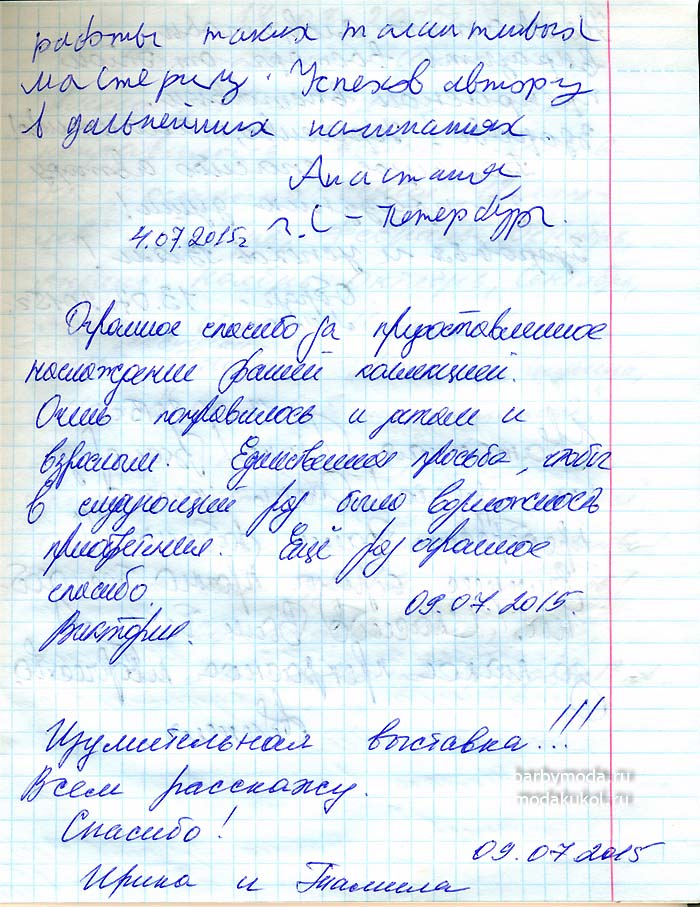 работы таких талантливых
мастериц. Успехов автору
в дальнейших начинаниях.
Анастасия,
г. С-Петербург.
4.07.2015г
Огромное спасибо за предоставленное
наслаждение Вашей коллекцией.
Очень понравилось и детям и
взрослым. Единственная просьба, чтобы
в следующий раз было возможность
приобретения. Ещё раз огромное
спасибо.
09.07.2015.
Виктория.
Изумительная выставка!!!
Всем расскажу.
barbymoda.ru
modakukol.ru
Спасибо!
09.07.2015
Ирина и Тамила